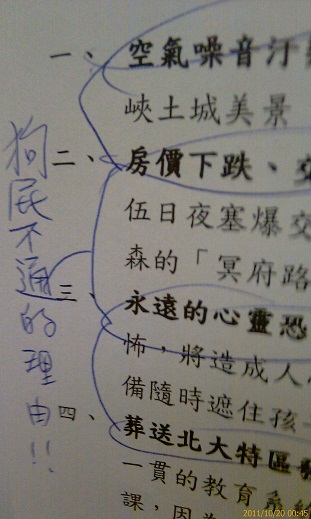 一、空氣噪音汙
峽土城美景
二、房價下跌、交
伍日夜塞爆交
森的「冥府路
三、永遠的心靈恐
怖，將造成人心
備隨時遮住孩
四、葬送北大特區發
一貫的教育系統
課，因為
狗屁不通的理由!!
2011/10/20 00:45